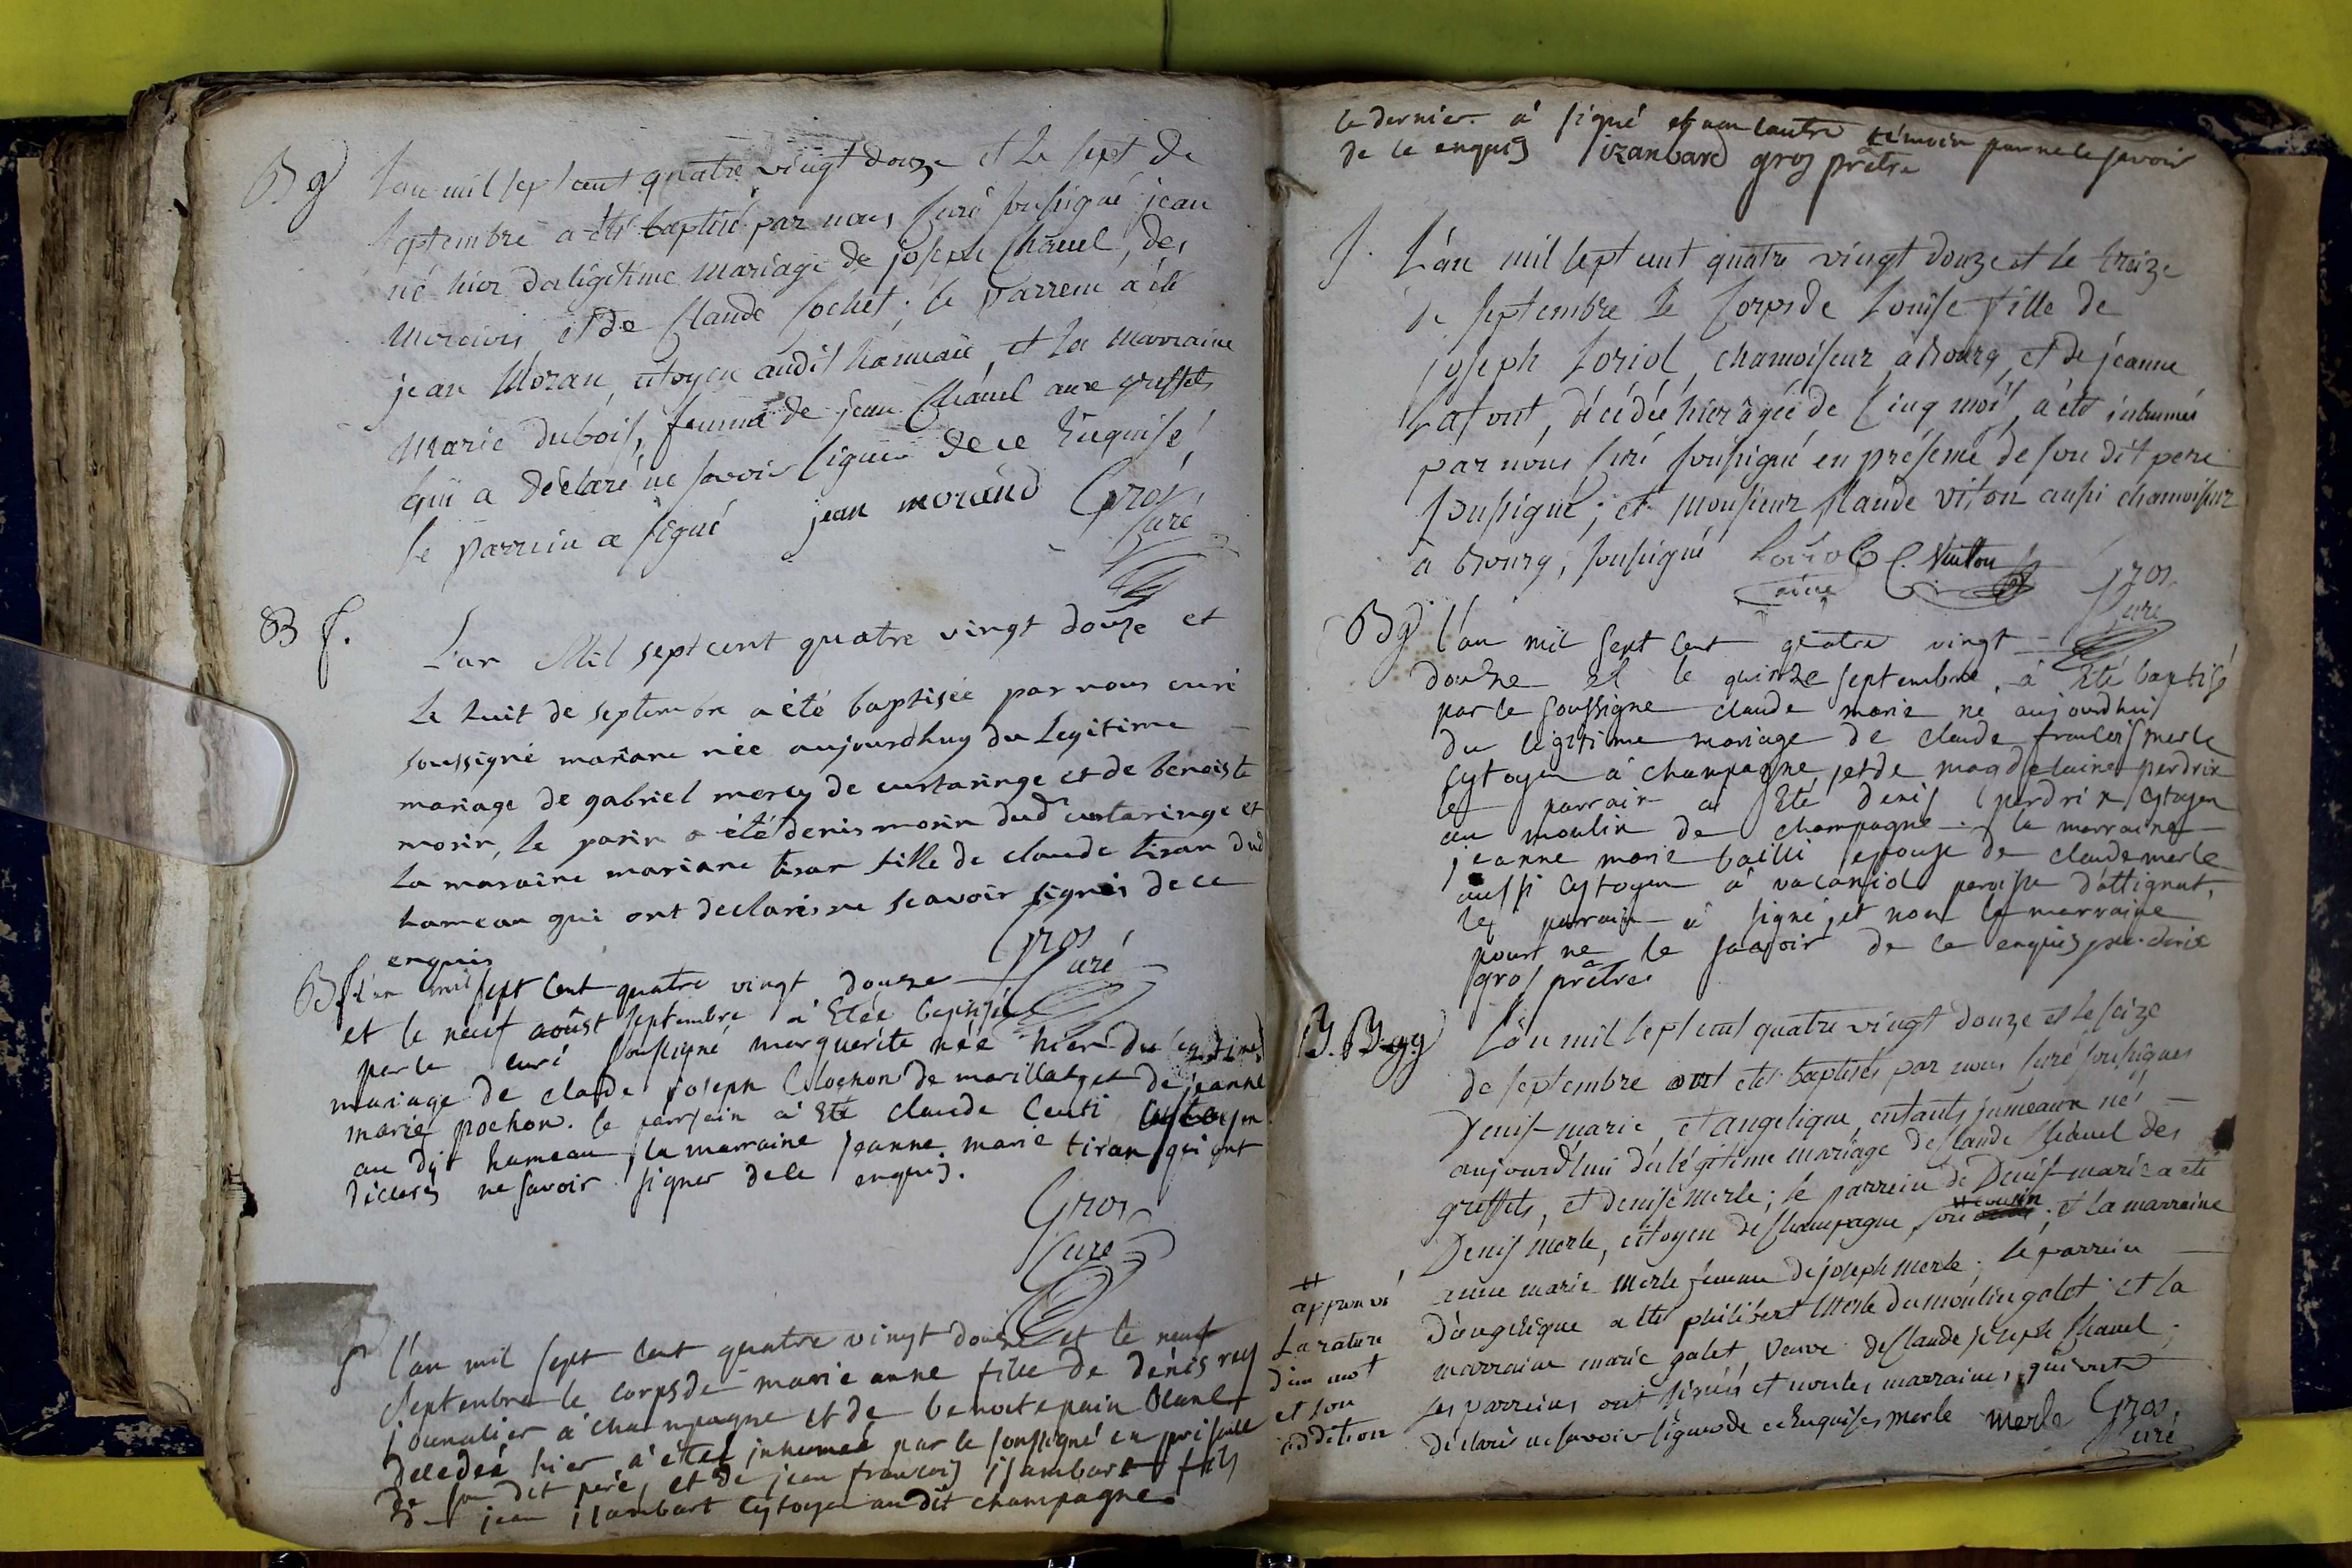 Bg L'an mil sept cent quatre vingt douze et le sept de
septembre a été baptisé par nous Curé soussigné jean
né hier du légitime mariage de joseph Chanel, des
et de Claude Cochet; le Parrein a été
jean Moran, citoyen audit hameau, et la marraine
Marie dubois, femme de jean Chanel aux greffets
qui a déclaré ne savoir signer de ce Enquise,
le parrein a signé jean morand Gros,
Curé
B f. L'an Mil sept cent quatre vingt douze et
le huit de septembre a été baptisée par nous curé
soussigné mariane née aujourdhuy du Legitime
mariage de gabriel mercy de curtaringe et de benoiste
morin, le parin a été denis morin dud curtaringe et
la maraine mariane tiran fille de claude tiran dud
hameau qui ont declarés ne scavoir signés de ce
enquis Gros
Curé
Bf l'an mil sept Cent quatre vingt douze
et le neuf aoûst septembre a Etée baptisée
par le curé soussigné marguerite née hier du légitime
mariage de claude joseph Cochon de marillat et de jeanne
marie pochon. le parrein a Eté claude Ceuti Cytoyen
au dit hameau, la marraine jeanne marie tiran qui ont
déclarés ne savoir signer de ce enquis.
Gros
Curé
S l'an mil sept Cent quatre vingt douze et le neuf
septembre le corps de marie anne fille de dénis rey
journalier a champagne et de benoite pain blanc
decedeé hier a étée inhumeé par le soussigné en présence
de son dit pere, et de jean francois isambart fils
de jean isambart Cytoyen au dit champagne.
le dernier a signé et non lautre témoin pour ne le savoir
de ce enquis izanbard gros prêtre
S. L'an mil sept cent quatre vingt douze et le treize
de septembre le Corps de Louise fille de
joseph Loriol, chamoiseur a Bourg, et de jeanne
Lafont, décédée hier agée de Cinq mois, a été inhumée
par nous Curé soussigné en présence de son dit pere
soussigné; et monsieur Claude viton aussi chamoiseur
a Bourg, soussigné Loriol C. Vuiton Gros
ainé Curé
Bg l'an mil sept Cent quatre vingt
douze et le quinze septembre, a Eté baptisé
par le soussigne claude marie ne aujourdhui
du légitime mariage de claude francois merle
Cytoyen a champagne, et de magdelaine perdrix
le parrain a Eté denis perdrix Cytoyen
au moulin de champagne. la marraine
jeanne marie bailli epouse de claude merle
aussi Cytoyen a vacaniole paroisse d'attignat,
le parrain a signé, et non la marraine
pour ne le savoir de ce enquis perdrix
gros prêtre
B.B.gg L'an mil sept cent quatre vingt douze et le seize
de septembre ont etés baptisés par nous Curé soussignés
Denis-marie, et angelique, enfants jumeaux nés
aujourd'hui du légitime mariage de Claude Chanel des
greffets, et denise Merle; le parrein de Denis-marie a été
Denis Merle, citoyen de Champagne, son # cousin; et la marraine
anne marie Merle femme de joseph Merle; le parrein
d'angelique a été philibert Merle du moulin galet et la
marraine marie galet, Veuve de Claude joseph Chanel;
les parreins ont signés et non les marraines, qui ont
déclaré ne savoir signer de ce Enquises merle Merle Gros,
Curé
#
approuvé
la rature
d'un mot
et son
addition